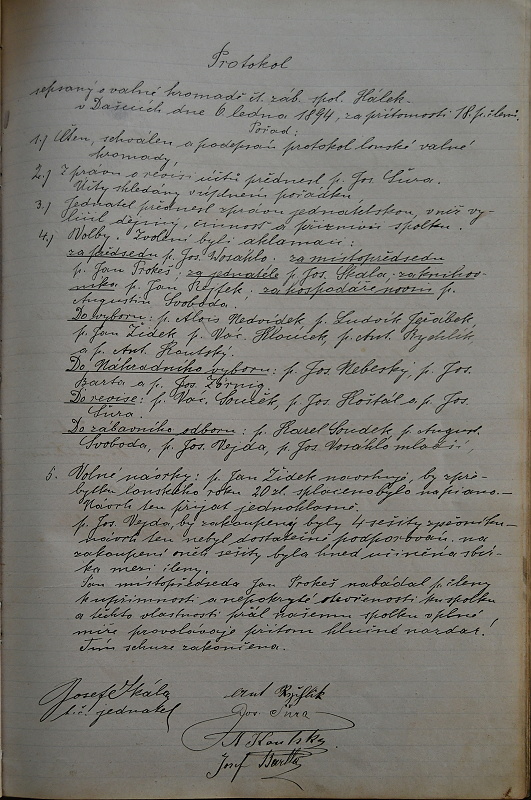 Protokol
sepsaný o valné hromadě čt. záb. spol. Hálek
v Dašicích dne 6 ledna 1894, za přítomosti 18. p. členů.
Pořad:
1.) Čten, schválen a podepsán protokol lonské valné
hromady,
2.) Zprávu o revisi účtů přednesl p. Jos. Šůra.
Účty shledány v úplném pořádku
3.) Jednatel přednesl zprávu jednatelskou, v níž vy-
líčil dějiny, činnost a příznivce spolku.
4.) Volby. Zvoleni byli aklamací:
za předsedu p. Jos. Vosahlo. za místopředsedu
p. Jan Prokeš; za jednatele p. Jos. Skála, za knihov-
níka p. Jan Rejfek; za hospodáře p.
Augustin Svoboda.
Do výboru: p. Alois Nedvídek, p. Ludvík Jeřábek,
p. Jan Žídek, p. Vác. Hlouček, p. Ant. Rychlík,
a p. Ant. Koutský.
Do Náhradního výboru: p. Jos. Nebeský, p. Jos.
Barta a p. Jos.
Do revise: p. Vác. Souček, p. Jos. Košťál a p. Jos.
Šůra.
Do zábavního odboru: p. Karel Soudek, p. August.
Svoboda, p. Jos. Vejda, p. Jos. Vosahlo mladší,
5. Volné návrhy: p. Jan Žídek navrhuje, by z pře-
bytku lonského roku 20 zl. splaceno bylo na piano.
Návrh ten přijat jednohlasně.
p. Jos. Vejda, by zakoupeny byly 4 sešity zpěvníku
návrh ten nebyl dostatečně podporován. na
zakoupení oněch sešitů byla hned učiněna sbír-
ka mezi členy.
Pan místopředseda Jan Prokeš nabádal p. členy
k upřímnosti a nepokryté otevřenosti ku spolku
a těchto vlastností přál našemu spolku v plné
míře provolávaje přitom hlučné nazdar!
Tím schůze zakončena.
Josef Skála
t. č. jednatel
Ant Rychlík
Jos. Šůra
A Koutský
Josef Barta